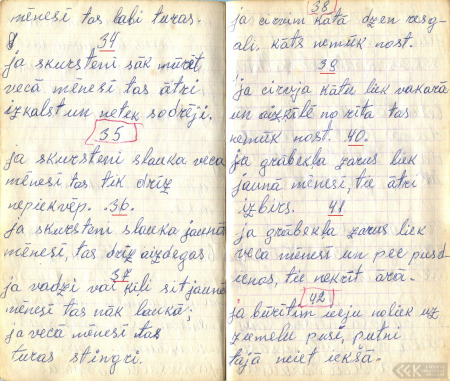 mēnesī tas labi turas.
34
ja skursteni sāk mūrēt
vecā mēnesī tas ātri
izkalst un netek sodrēji.
35
ja skursteni slauka vecā
mēnesī tas tik drīz
nepiekvēp. 36.
ja skursteni slauka jaunā
mēnesī, tas drīz aizdegas
37
ja vadzi vai ķīli sit jaunā
mēnesī tas nāk laukā;
ja vecā mēnesī tas
turas stingri.
38
ja cirvim kātā dzen resg-
ali, kāts nemūk nost.
39
ja cirvja kātu liek vakarā
un aizķīlē no rīta tas
nemūk nost. 40.
ja grābekļa zarus liek
jaunā mēnesī, tie ātri
izbirs. 41
ja grābekļa zarus liek
vecā mēnesī un pēc pusd-
ienas, tie nekrīt ārā.
42
ja būrītim ieeju noliek uz
ziemeļu pusi, putni
tajā neiet iekšā.